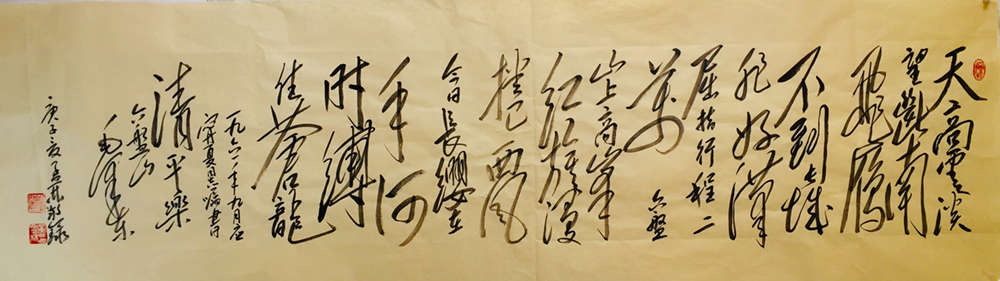 天高雲淡
望斷南
飛雁
不到長城
非好漢
屈指行程二
萬
六盤
山上高峯
紅旗漫
捲西風
今日長纓在
手何
時縛
住蒼龍
一九六一年九月应
寧夏同志嘱書
清平樂
六盤山
毛澤東
庚子